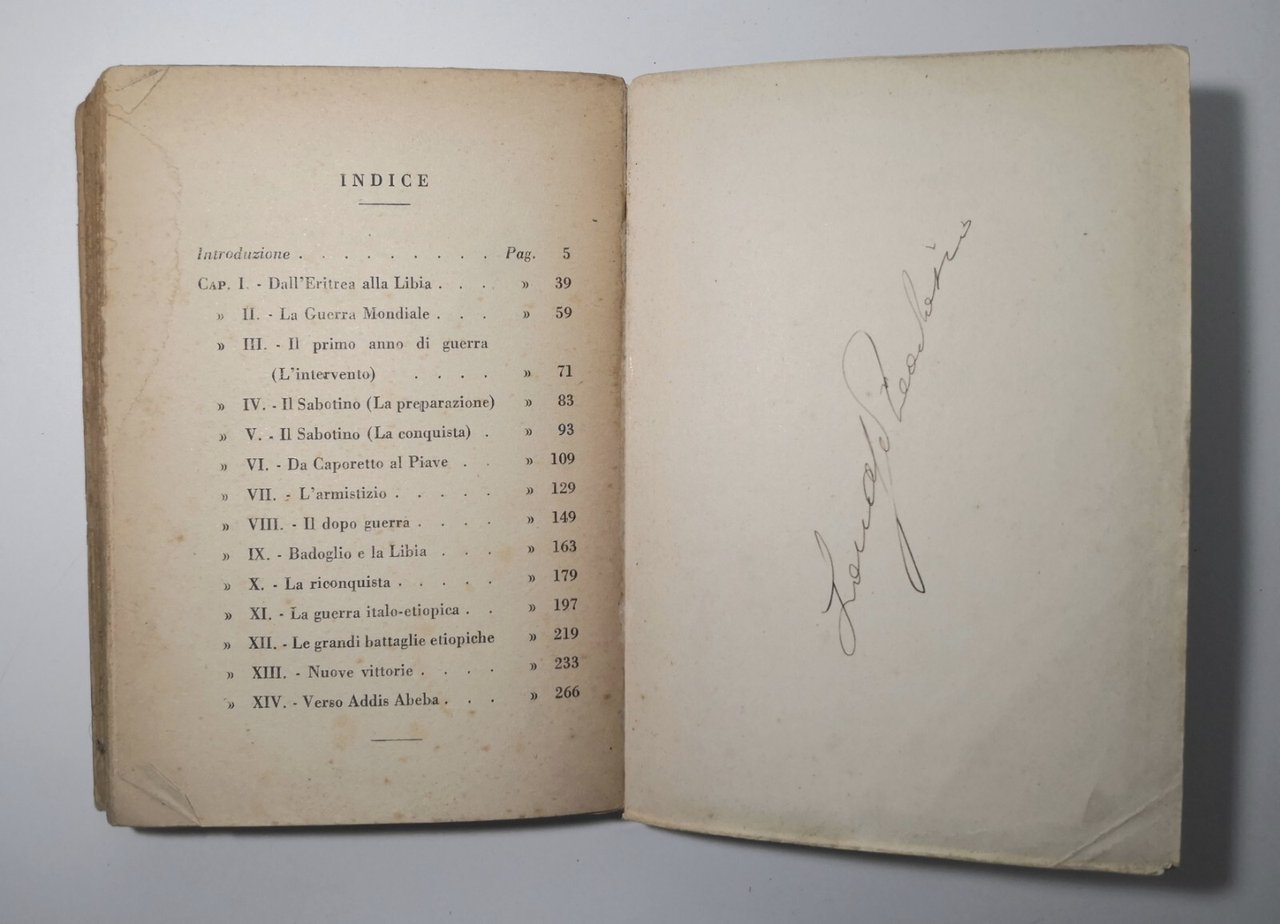 INDICE
Introduzione . . . . . . . . . Pag. 5
CAP. I. - Dall'Eritrea alla Libia . . . » 39
» II. - La Guerra Mondiale . . . » 59
» III. - Il primo anno di guerra
(L'intervento) . . . . » 71
» IV. - Il Sabotino (La preparazione) » 83
» V. - Il Sabotino (La conquista) . » 93
» VI. - Da Caporetto al Piave . . » 109
» VII. - L'armistizio . . . . . » 129
» VIII. - Il dopo guerra . . . . » 149
» IX. - Badoglio e la Libia . . . » 163
» X. - La riconquista . . . . . » 179
» XI. - La guerra italo-etiopica . . » 197
» XII. - Le grandi battaglie etiopiche » 219
» XIII. - Nuove vittorie . . . . » 233
» XIV. - Verso Addis Abeba . . . » 266